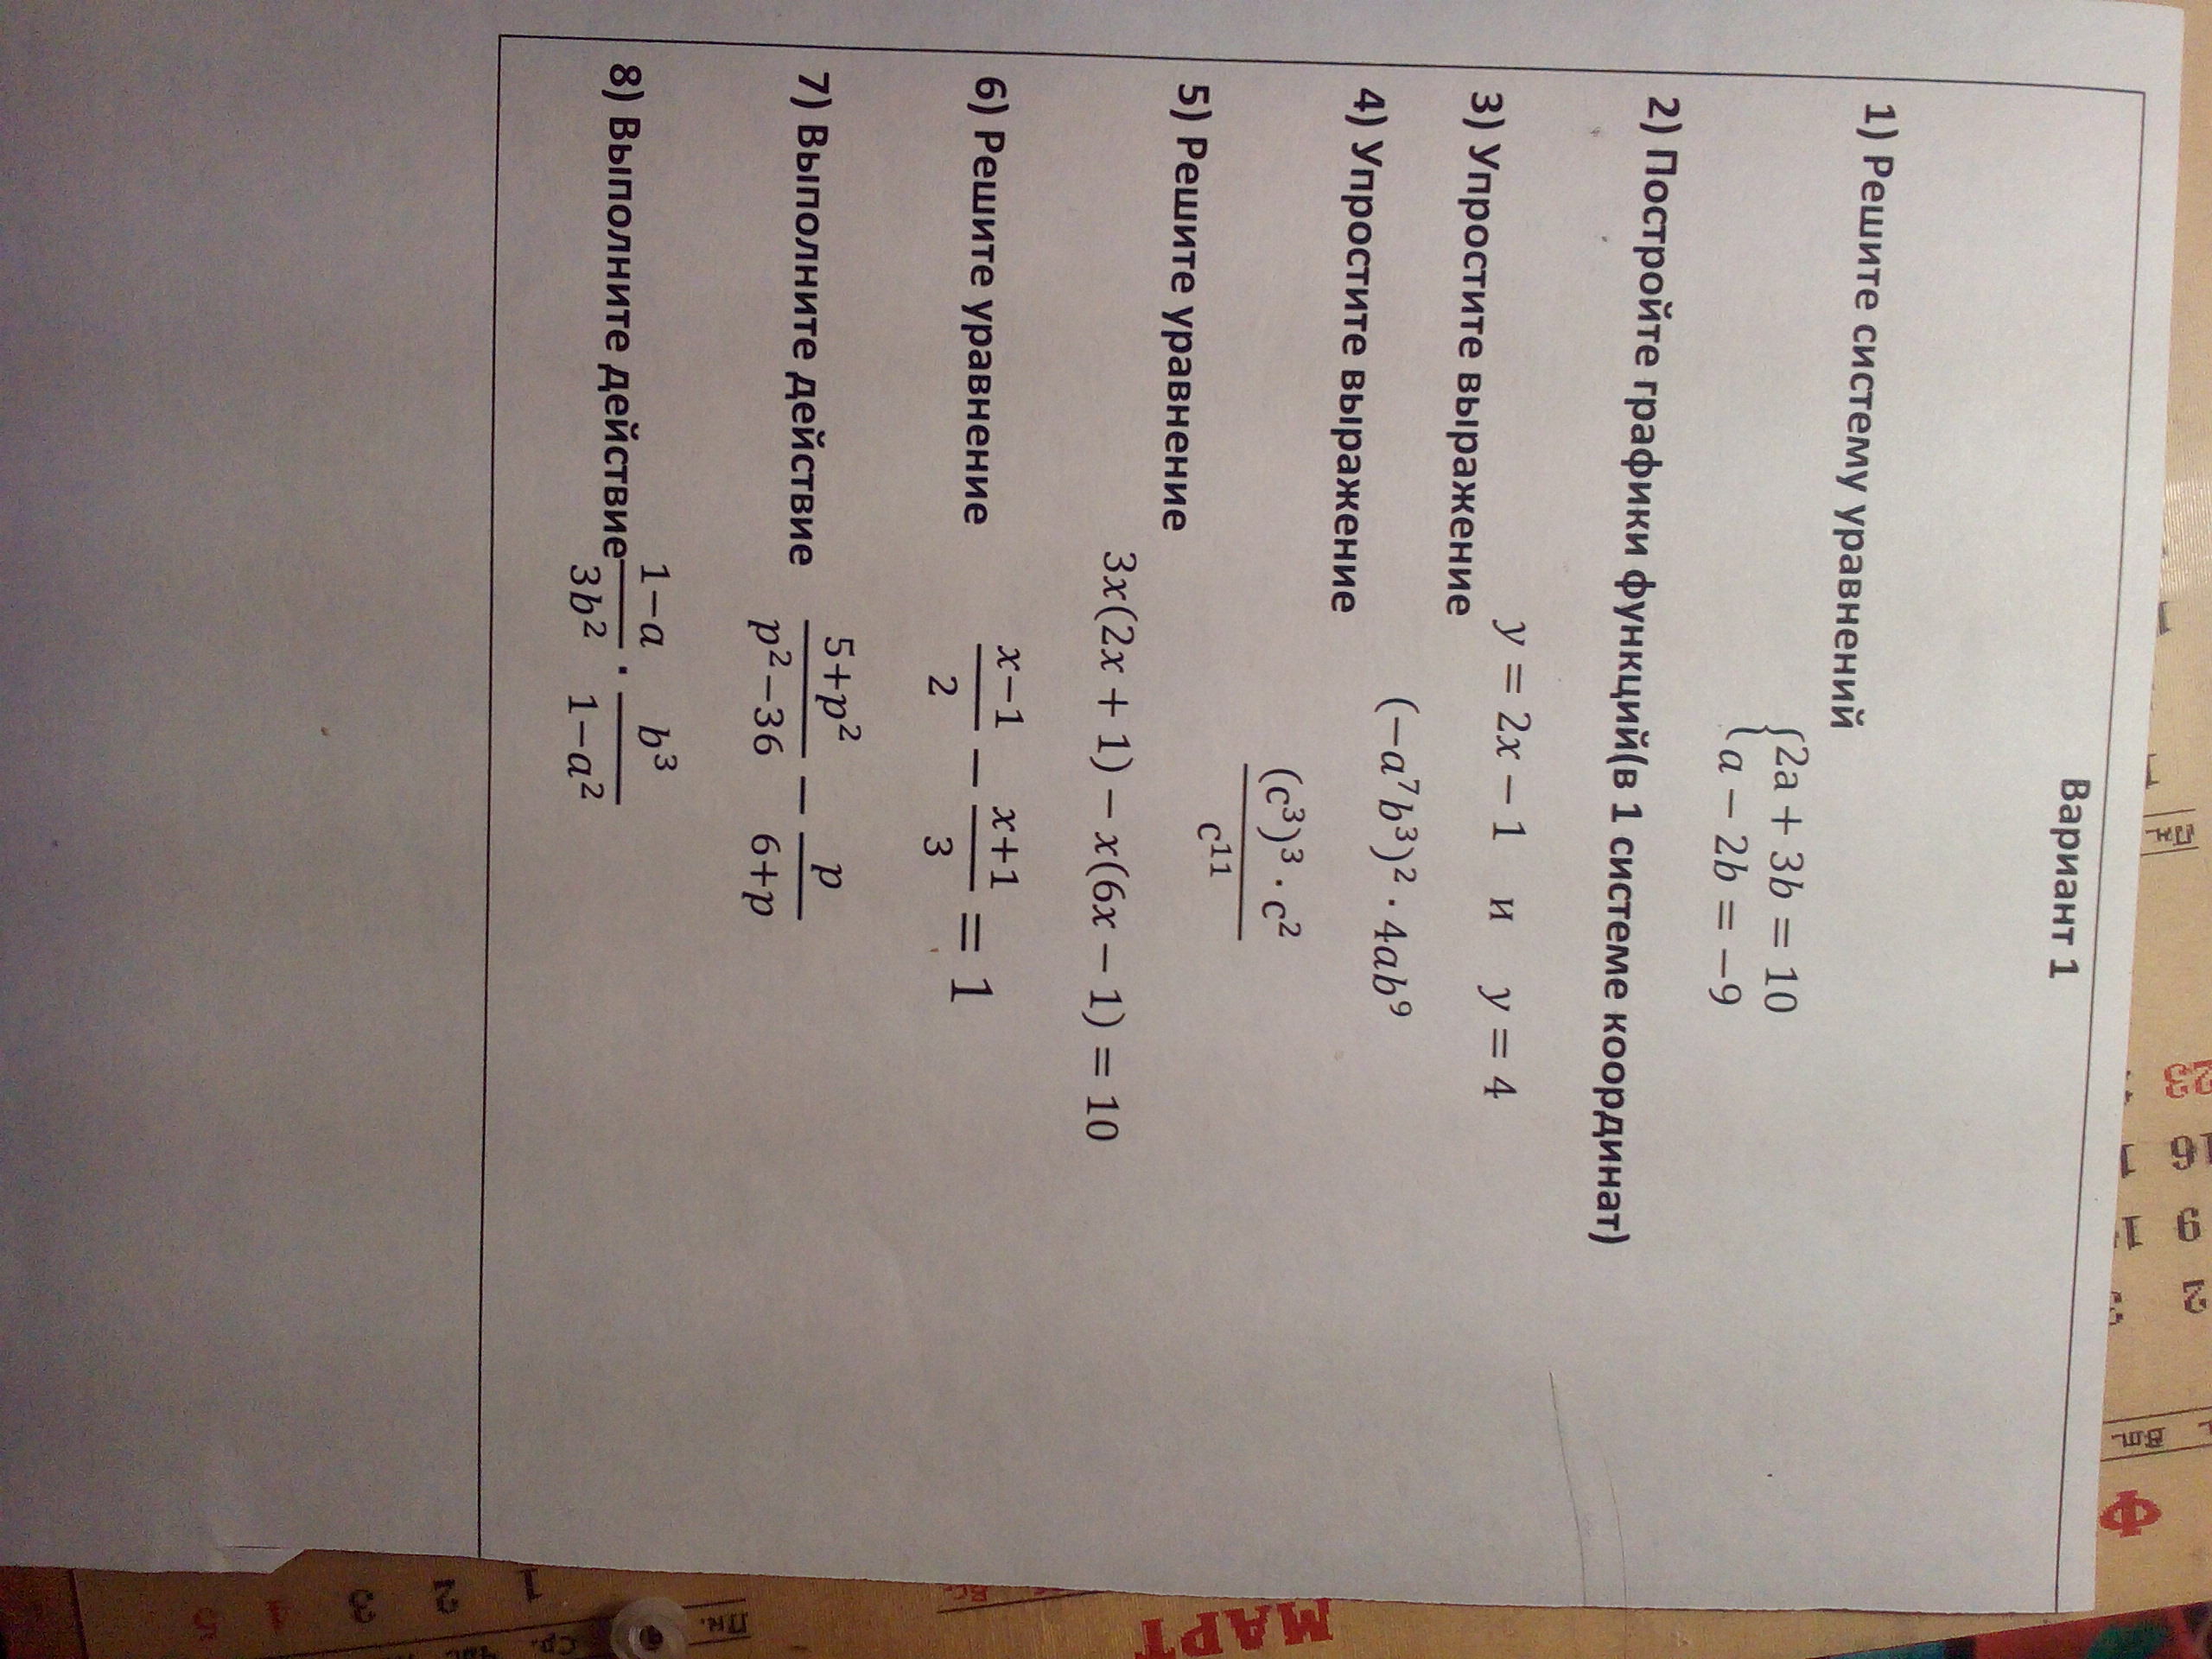 Вариант 1
1) Решите систему уравнений
{2a + 3b = 10
a − 2b = −9
2) Постройте графики функций(в 1 системе координат)
y = 2x − 1 и y = 4
3) Упростите выражение
(−a⁷b³)² · 4ab⁹
4) Упростите выражение
(c³)³ · c²
c¹¹
5) Решите уравнение
3x(2x + 1) − x(6x − 1) = 10
6) Решите уравнение x−1/2 − x+1/3 = 1
7) Выполните действие 5+p²/p²−36 − p/6+p
8) Выполните действие 1−a/3b² · b³/1−a²
МАРТ
Ф
23
16
9
2
Пн.
Ср.
1
2
3
4
5